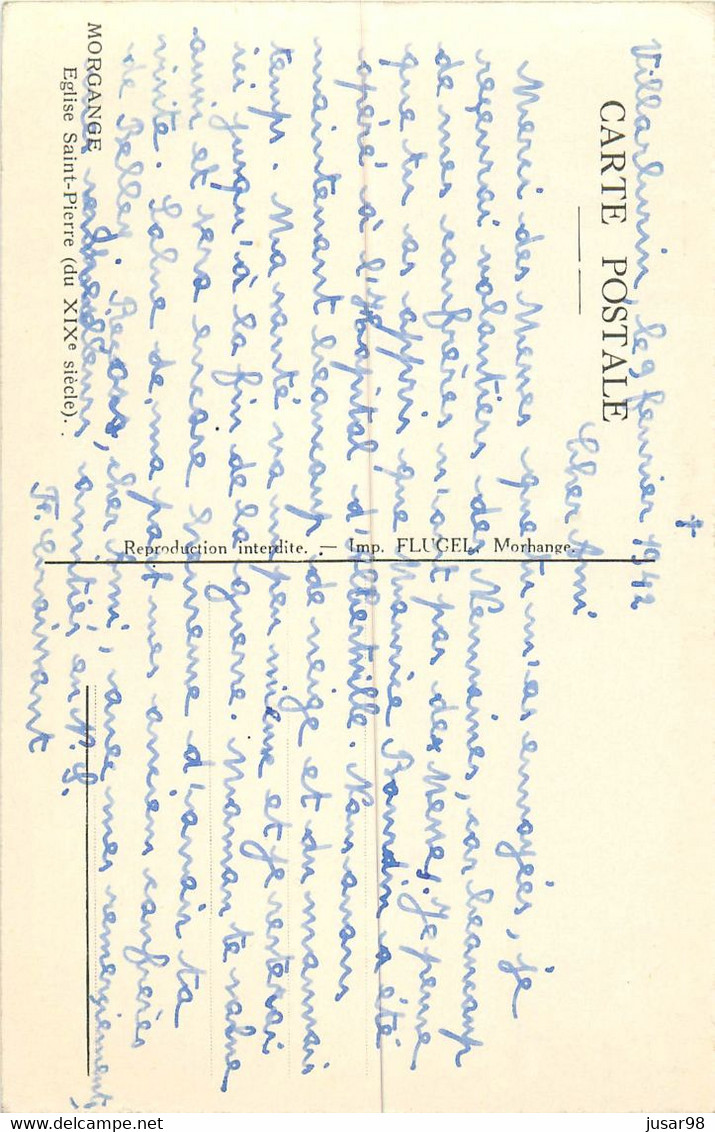 +
Villarlurin, le 9 février 1942
CARTE POSTALE
Cher Ami
Merci des Menes que tu m'as envoyées, je
recevrai volontiers des Neuvaines, car beaucoup
de mes confrères n'ont pas des Menes. Je pense
que tu as appris que Maurice Bourdin a été
opéré à l'Hopital d'Albertville. Nous avons
maintenant beaucoup de neige et du mauvais
temps. Ma santé va un peu mieux et je resterai
ici jusqu'à la fin de la guerre. Maman te salue
aussi et sera encore heureuse d'avoir ta
visite. Salue de ma part mes anciens confrères
de Belley. Reçois, cher Ami, avec mes remerciements,
mes meilleurs amitiés en N. S.
Fr.
Reproduction interdite. — Imp. FLUGEL, Morhange.
MORGANGE
Eglise Saint-Pierre (du XIXe siècle).
jusar98